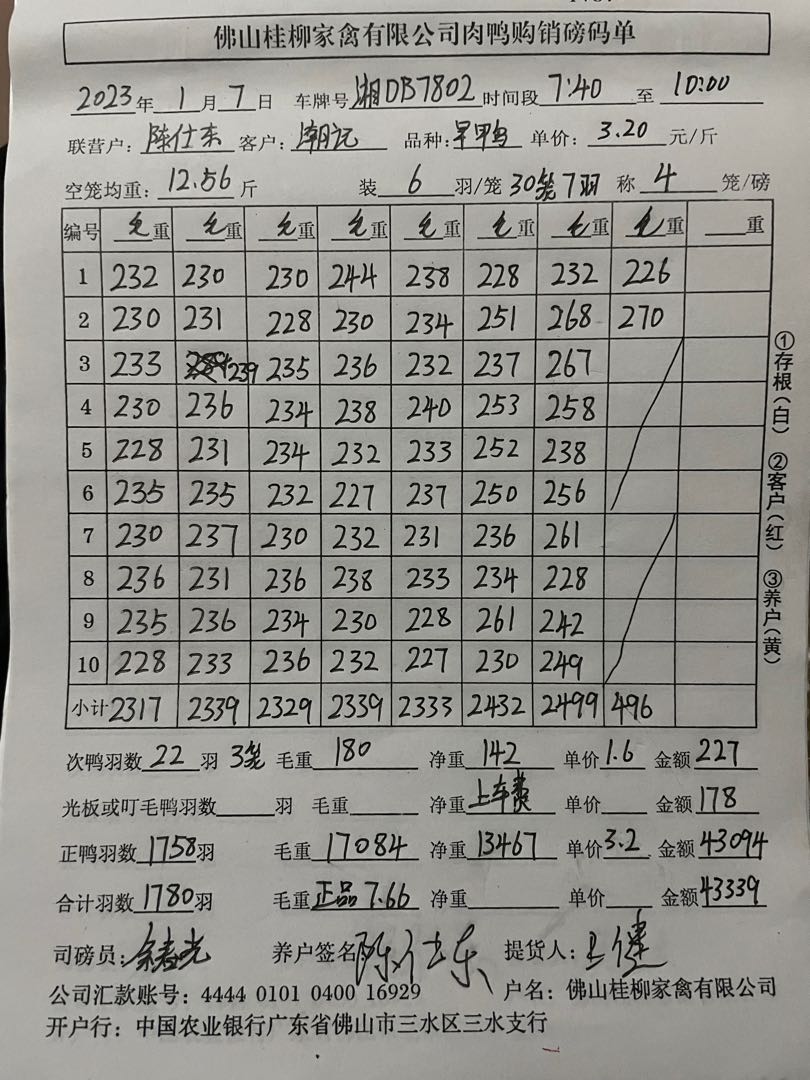 佛山桂柳家禽有限公司肉鸭购销磅码单
2023年 1月 7日 车牌号 湘DB7802 时间段 7:40 至 10:00
联营户：陈仕东 客户：潮记 品种：旱鸭 单价：3.20 元/斤
空笼均重：12.56 斤 装 6 羽/笼 30笼7羽 称 4 笼/磅
编号 毛重 毛重 毛重 毛重 毛重 毛重 毛重 毛重 重
1 232 230 230 244 238 228 232 226
2 230 231 228 230 234 251 268 270
3 233 239 235 236 232 237 267
4 230 236 234 238 240 253 258
5 228 231 234 232 233 252 238
6 235 235 232 227 237 250 256
7 230 237 230 232 231 236 261
8 236 231 236 238 233 234 228
9 235 236 234 230 228 261 242
10 228 233 236 232 227 230 249
小计 2317 2339 2329 2339 2333 2432 2499 496
①存根（白） ②客户（红） ③养户（黄）
次鸭羽数 22 羽 3笼 毛重 180 净重 142 单价 1.6 金额 227
光板或叮毛鸭羽数 羽 毛重 净重 上车费 单价 金额 178
正鸭羽数 1758羽 毛重 17084 净重 13467 单价 3.2 金额 43094
合计羽数 1780羽 毛重 正品7.66 净重 单价 金额 43339
司磅员： 养户签名 陈仕东 提货人：
公司汇款账号：4444 0101 0400 16929 户名：佛山桂柳家禽有限公司
开户行：中国农业银行广东省佛山市三水区三水支行